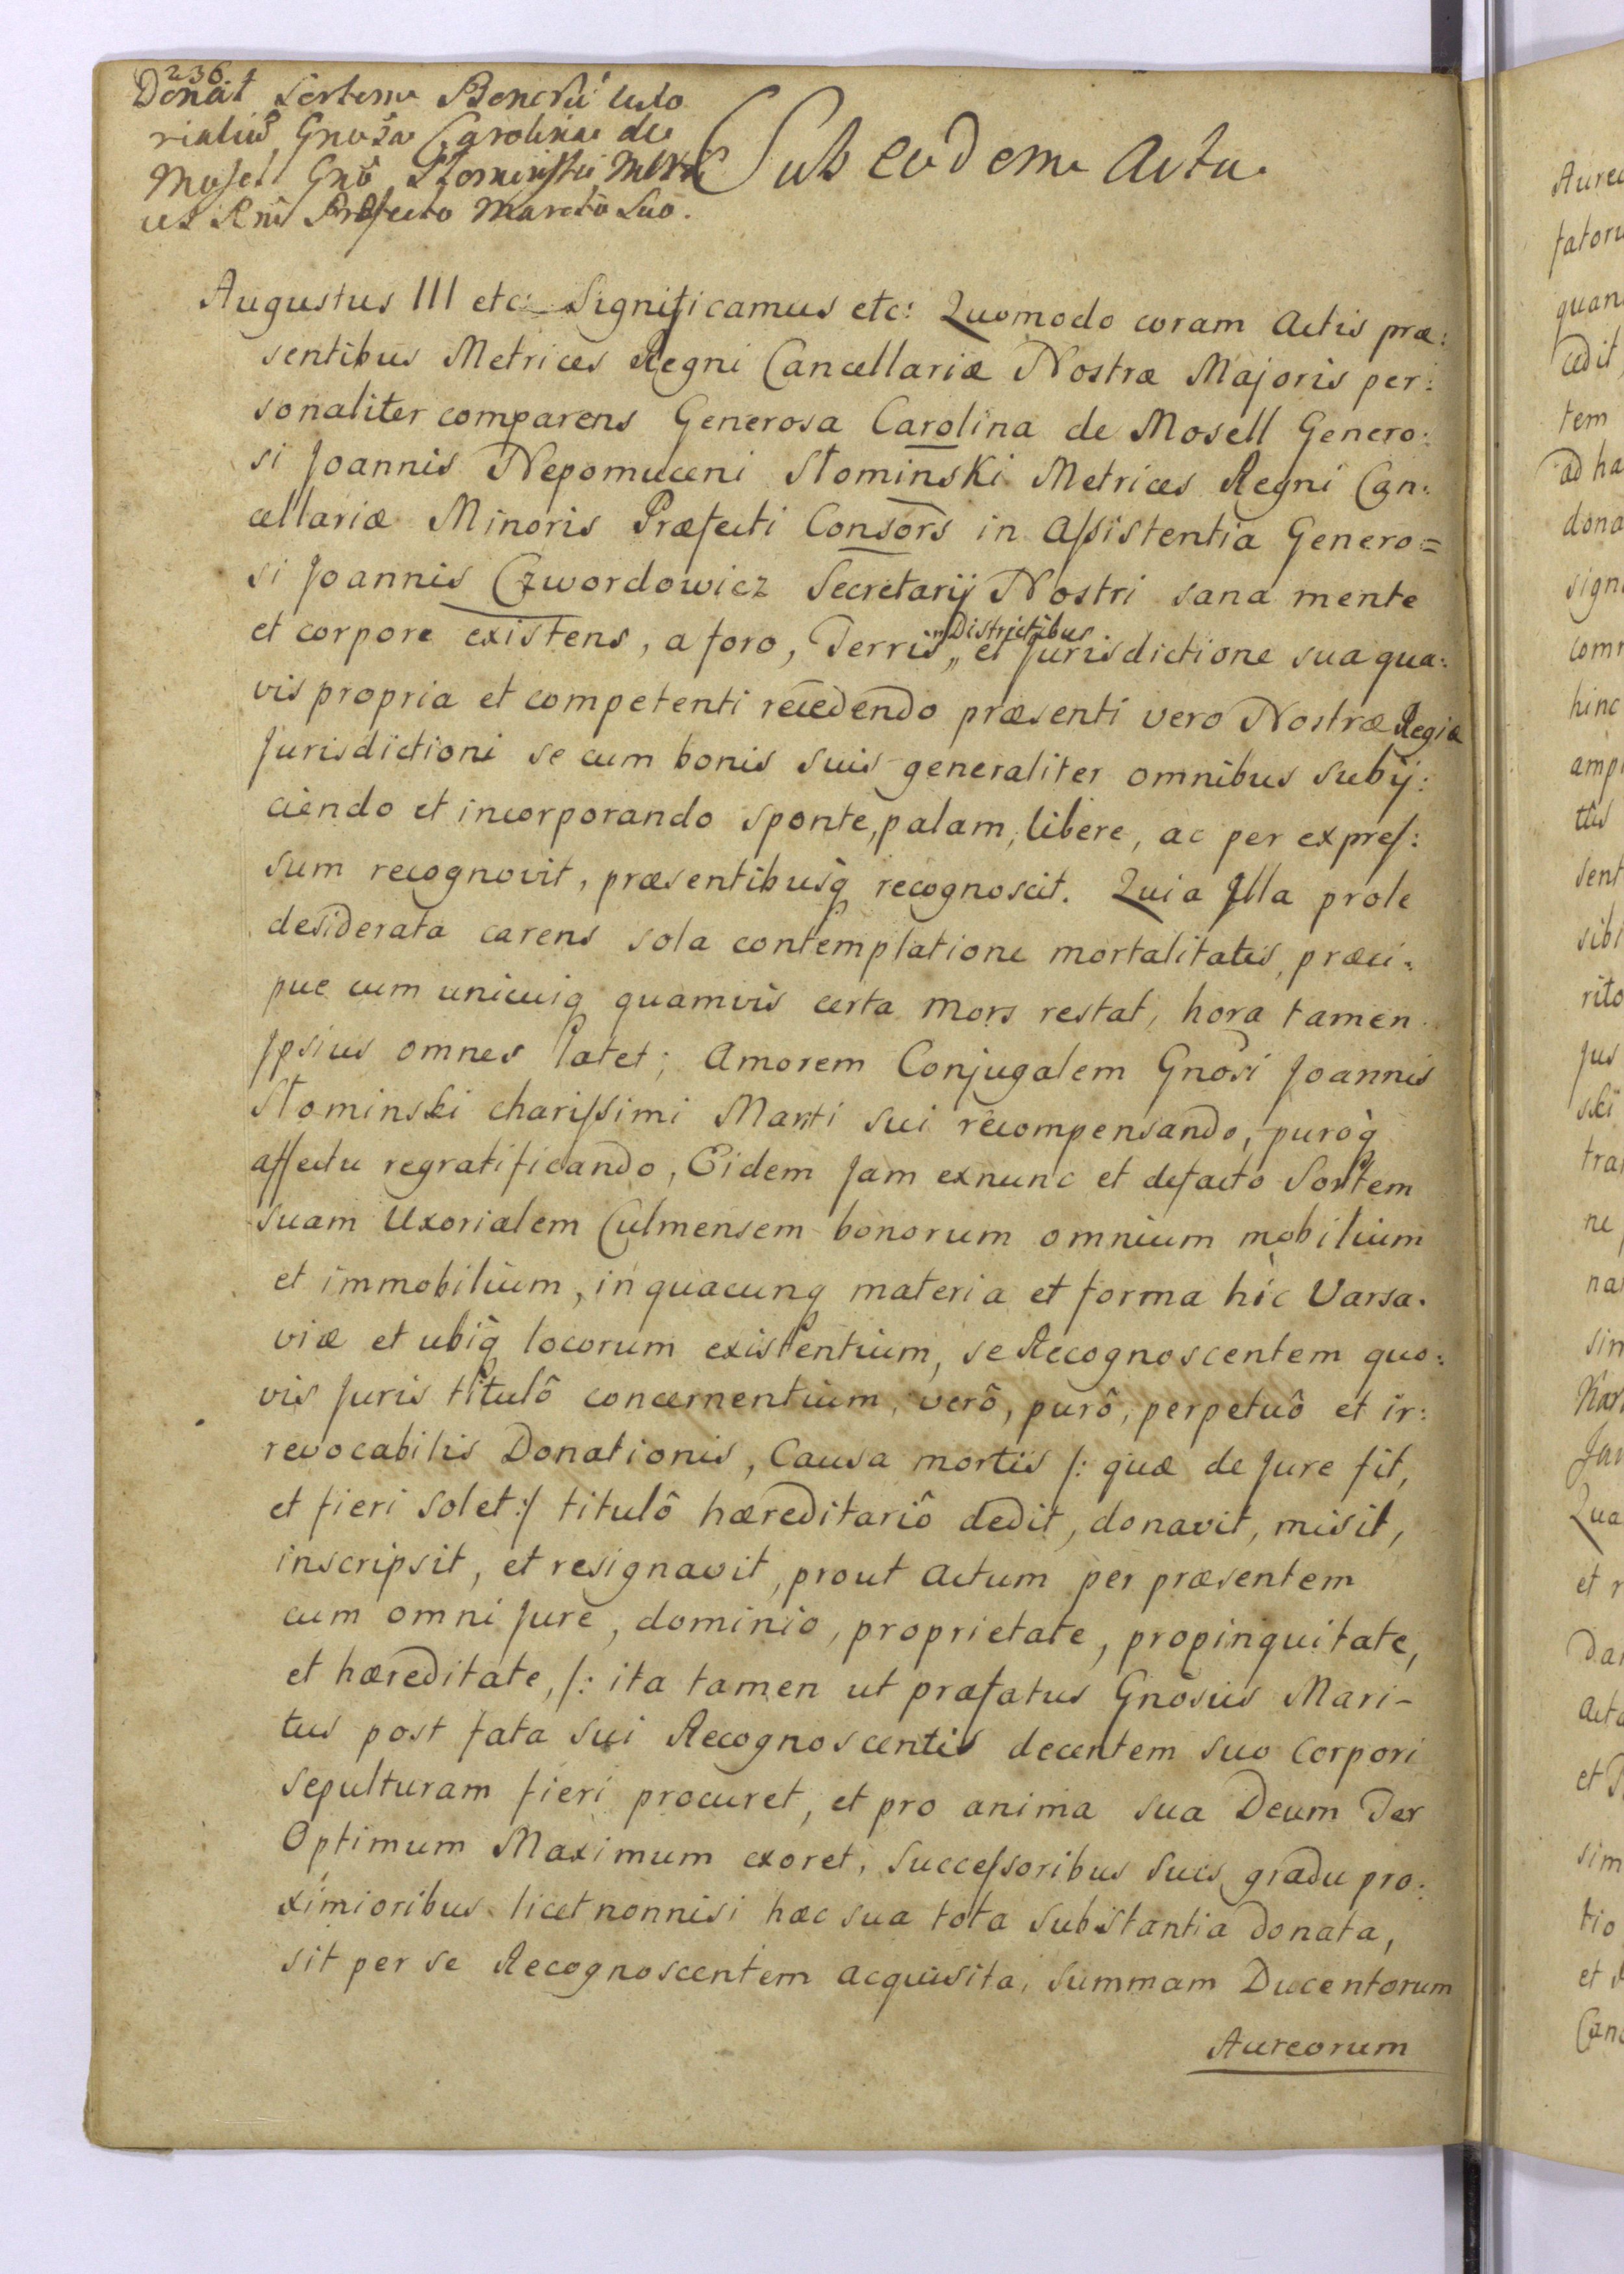 236.
Donat Sortem Bonorū
Gnosa Carolina de
Mosell Gnō Słominski Metri
ces Rni Præfecto Marito Suo.
Sub eodem Actu.
Augustus III etc: Significamus etc: Quomodo coram Actis præ:
sentibus Metrices Regni Cancellariæ Nostræ Majoris per:
sonaliter comparens Generosa Carolina de Mosell Genero:
si Joannis Nepomuceni Słominski Metrices Regni Can:
cellariæ Minoris Præfecti Consors in Aſsistentia Genero=
si Joannis Czwordowicz Secretarij Nostri sana mente
et corpore existens, a foro, Terris, Districtibus et Jurisdictione sua qua:
vis propria et competenti recedendo præsenti vero Nostræ Regiæ
Jurisdictioni se cum bonis suis generaliter omnibus subij:
ciendo et incorporando sponte, palam, libere, ac per expreſ:
sum recognovit, præsentibusq̀ recognoscit. Quia Illa prole
desiderata carens sola contemplatione mortalitatis, præci:
pue cum unicuiq quamvis certa Mors restat, hora tamen
Ipsius omnes latet; Amorem Conjugalem Gnōsi Joannis
Słominski chariſsimi Mariti sui recompensando, puroq̀
affectu regratificando, Eidem jam exnunc et defacto Sortem
suam Uxorialem Culmensem bonorum omnium mobilium
et immobilium, in quacunq materia et forma hic Varsa.
viæ et ubiq̀ locorum existentium, se Recognoscentem quo:
vis Juris titulô concernentium, verô, purô, perpetuô et ir:
revocabilis Donationis, Causa mortis /: quæ de Jure fit,
et fieri solet :/ titulô hæreditariô dedit, donavit, misit,
inscripsit, et resignavit, prout Actum per præsentem
cum omni Jure, dominio, proprietate, propinquitate,
et hæreditate, /: ita tamen ut præfatus Gnōsus Mari-
tus post fata sui Recognoscentis decentem suo Corpori
sepulturam fieri procuret, et pro anima sua Deum Ter
Optimum Maximum exoret, Succeſsoribus suis gradu pro:
ximioribus licet nonnisi hæc sua tota substantia donata,
sit per se Recognoscentem acquisita, summam Ducentorum
Aureorum